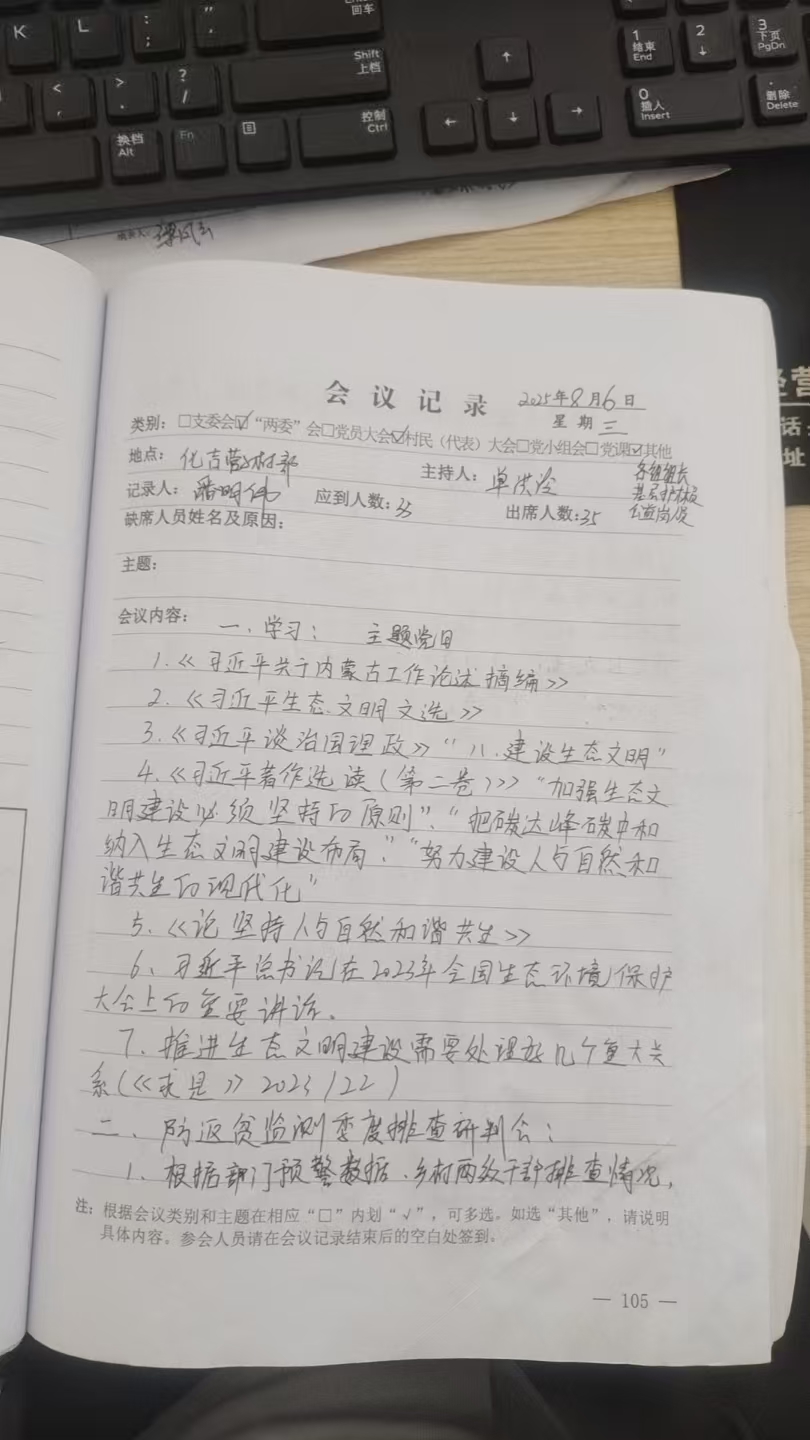 K
L
:
;
"
'
Enter
回车
<
,
>
.
?
/
Shift
上档
换档
Alt
Fn
控制
Ctrl
↑
←
↓
→
1
结束
End
2
↓
3
下页
PgDn
0
插入
Insert
.
删除
Delete
会议记录 2025年8月6日
星期三
类别：□支委会☑“两委”会□党员大会☑村民（代表）大会□党小组会□党课☑其他
各组组长
地点：化吉营村村部 主持人：单洪泠
记录人：潘明伟 应到人数：35 出席人数：35
公益岗人员
缺席人员姓名及原因：
主题：
会议内容：一、学习： 主题党日
1.《习近平关于内蒙古工作论述摘编》
2.《习近平生态文明文选》
3.《习近平谈治国理政》“八、建设生态文明”
4.《习近平著作选读（第二卷）》“加强生态文
明建设必须坚持的原则”、“把碳达峰碳中和
纳入生态文明建设布局”“努力建设人与自然和
谐共生的现代化”
5.《论坚持人与自然和谐共生》
6、习近平总书记在2023年全国生态环境保护
大会上的重要讲话。
7、推进生态文明建设需要处理好几个重大关
系(《求是》2023/22)
二、防返贫监测季度排查研判会：
1.根据部门预警数据、乡村两级干部排查情况，
注：根据会议类别和主题在相应“□”内划“√”，可多选。如选“其他”，请说明
具体内容。参会人员请在会议记录结束后的空白处签到。
— 105 —
营
话：
址